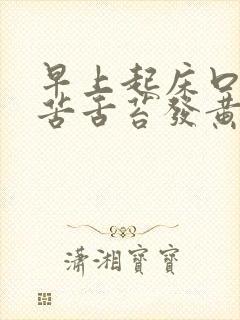 早上起床口
苦舌苔發黃
瀟湘寶寶